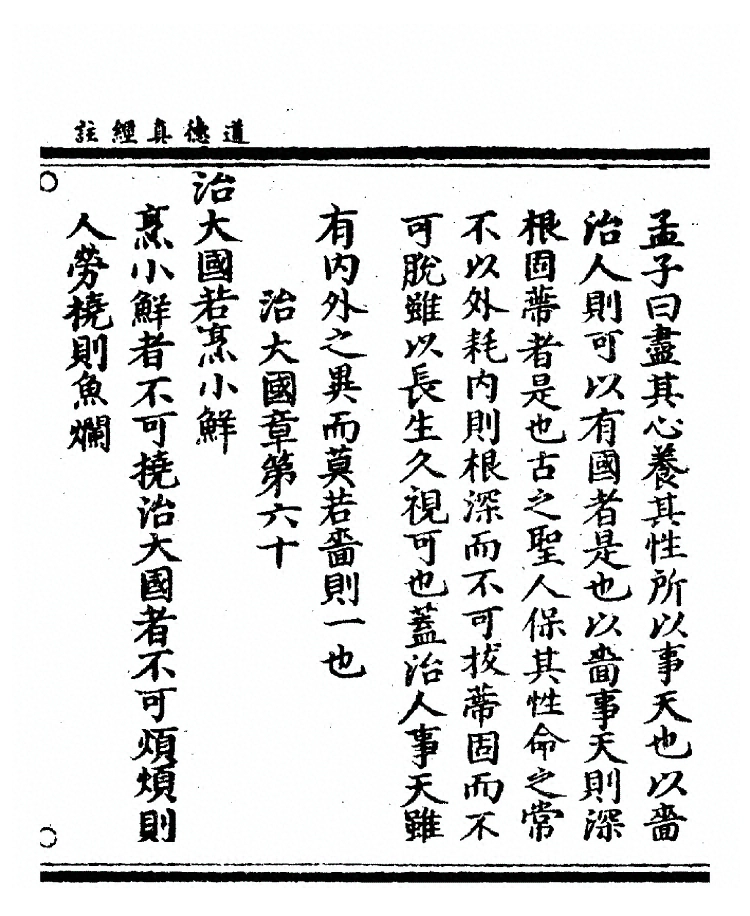 道德真經註
孟子曰盡其心養其性所以事天也以嗇
治人則可以有國者是也以嗇事天則深
根固蔕者是也古之聖人保其性命之常
不以外耗内則根深而不可拔蔕固而不
可脫雖以長生久視可也蓋治人事天雖
有内外之異而莫若嗇則一也
治大國章第六十
治大國若烹小鮮
烹小鮮者不可撓治大國者不可煩煩則
人勞撓則魚爛